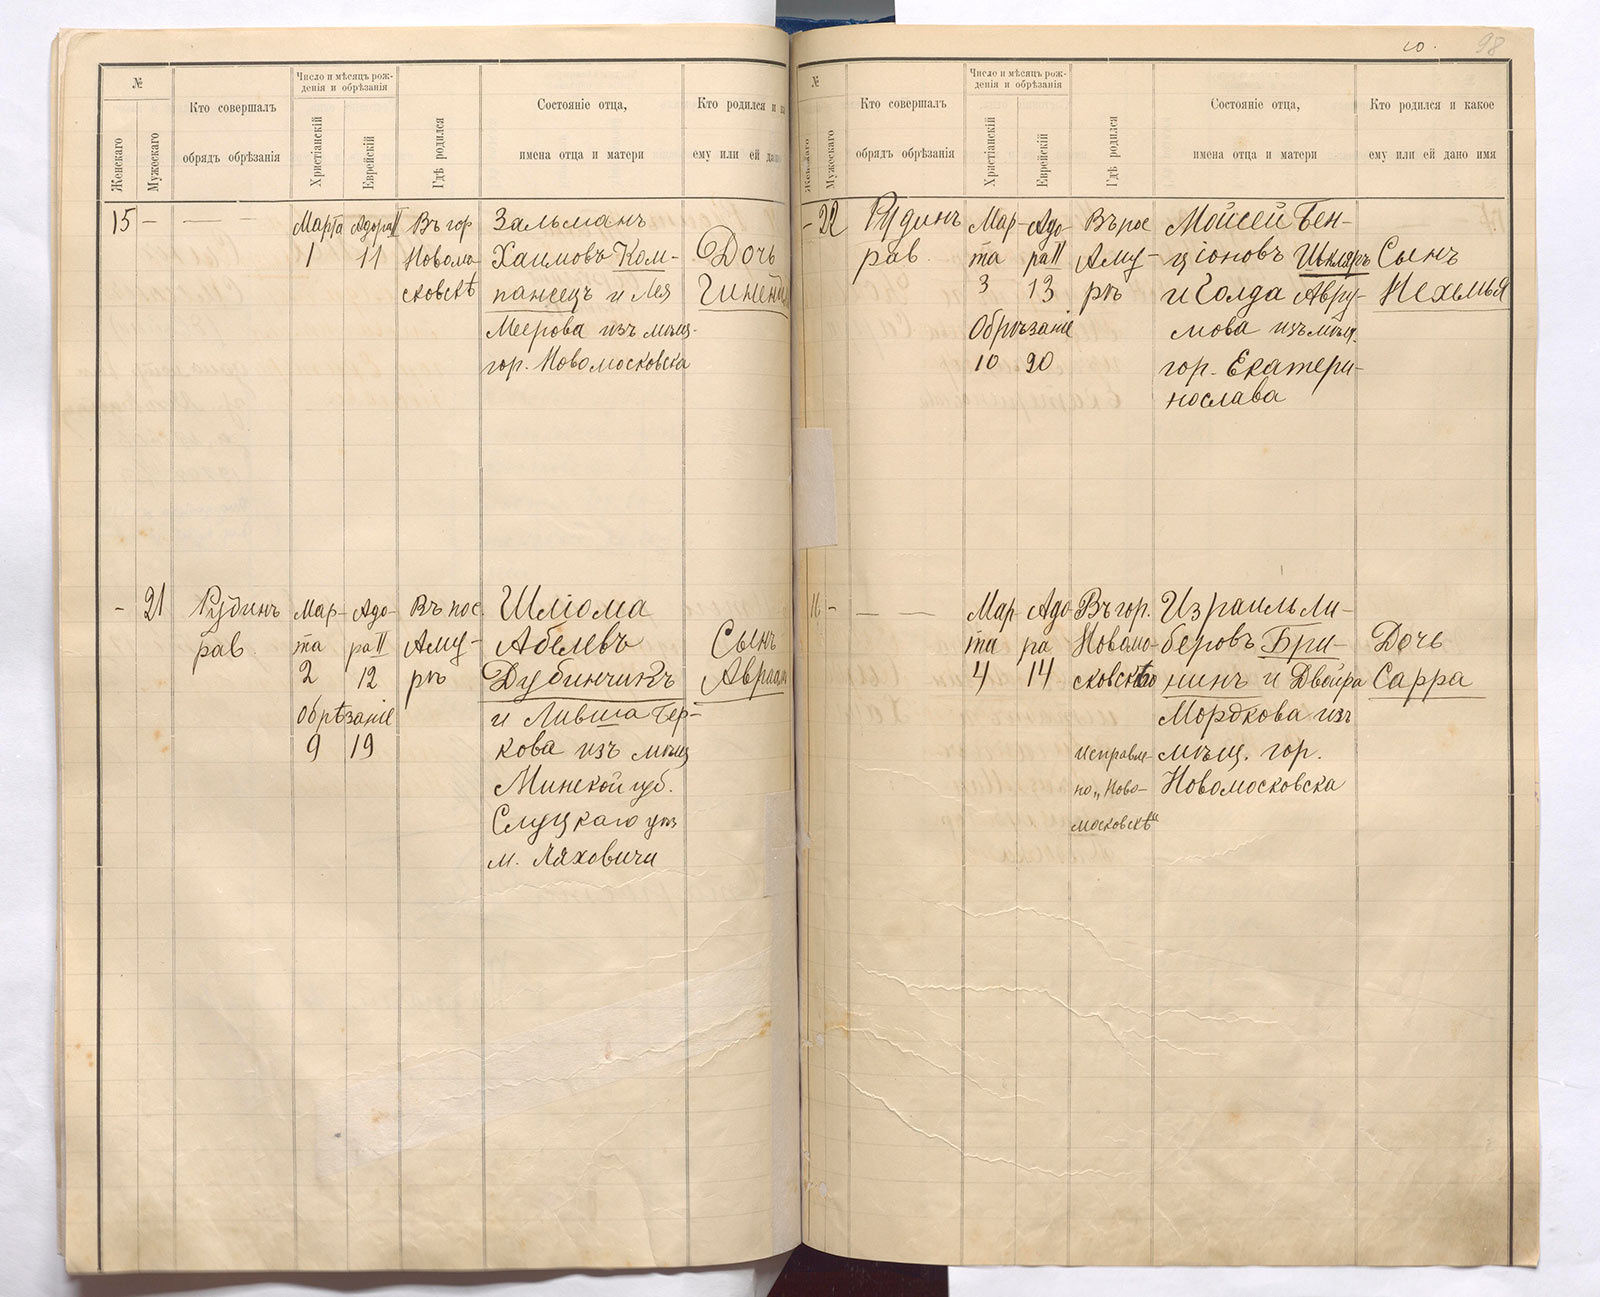 10.
98
№
Женскаго
Мужескаго
Кто совершалъ
обрядъ обрѣзанія
Число и мѣсяцъ рож-
денія и обрѣзанія
Христіанскій
Еврейскій
Гдѣ родился
Состояніе отца,
имена отца и матери
Кто родился и
ему или ей дано
15
—
Марта
1
Адора II
11
Въ гор
Новомо-
сковскѣ
Зальманъ
Хаимовъ Ком-
панеецъ и Лея
Меерова изъ мѣщ.
гор. Новомосковска
Дочь
—
21
Рубинъ
рав.
Мар-
та
2
Адо-
ра II
12
Обрѣзаніе
9
19
Въ пос.
Аму-
рѣ
Шліома
Абелевъ
Дубинчикъ
и Ливша Бер-
кова изъ мѣщ
Минской губ.
Слуцкаго
м. Ляховичи
Сынъ
Авраам
№
Женскаго
Мужескаго
Кто совершалъ
обрядъ обрѣзанія
Число и мѣсяцъ рож-
денія и обрѣзанія
Христіанскій
Еврейскій
Гдѣ родился
Состояніе отца,
имена отца и матери
Кто родился и какое
ему или ей дано имя
— 22
Рубинъ
рав.
Мар-
та
3
Адо-
ра II
13
Обрѣзаніе
10
20
Въ пос
Аму-
рѣ
Мойсей Бен-
ціоновъ Шкляръ
и Голда Авру-
мова изъ мѣщ.
гор. Екатери-
нослава
Сынъ
Нехемья
16
—
Мар
та
4
Адо
ра
14
Въ гор.
Новомо-
исправле-
но „Ново-
московскѣ“
Израиль Ли-
беровъ Бри-
нинъ и Двойра
Мордкова изъ
мѣщ. гор.
Новомосковска
Дочь
Сарра